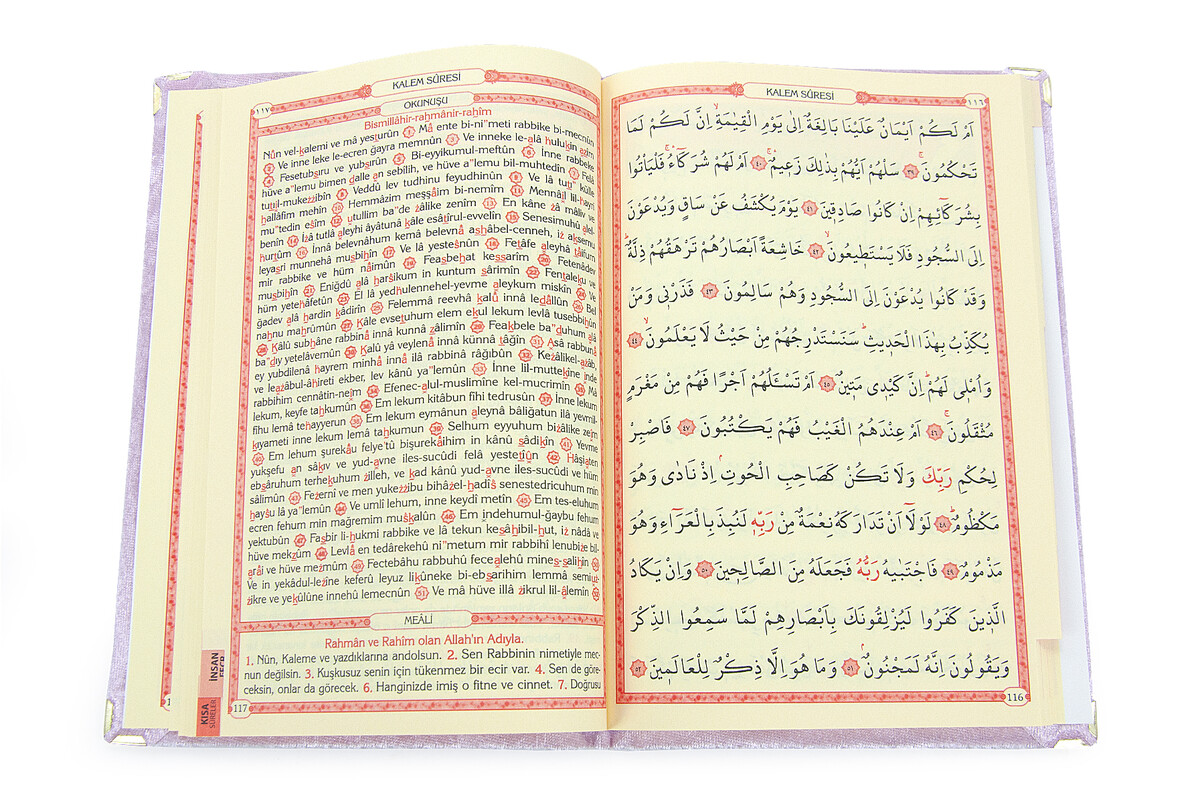 KALEM SÛRESİ
١١٦
اَمْ لَكُمْ اَيْمَانٌ عَلَيْنَا بَالِغَةٌ اِلٰى يَوْمِ الْقِيٰمَةِۙ اِنَّ لَكُمْ لَمَا
تَحْكُمُونَۚ ﴿٣٩﴾ سَلْهُمْ اَيُّهُمْ بِذٰلِكَ زَعِيمٌۚ ﴿٤٠﴾ اَمْ لَهُمْ شُرَكَٓاءُۚ فَلْيَأْتُوا
بِشُرَكَٓائِهِمْ اِنْ كَانُوا صَادِقِينَ ﴿٤١﴾ يَوْمَ يُكْشَفُ عَنْ سَاقٍ وَيُدْعَوْنَ
اِلَى السُّجُودِ فَلَا يَسْتَطِيعُونَۙ ﴿٤٢﴾ خَاشِعَةً اَبْصَارُهُمْ تَرْهَقُهُمْ ذِلَّةٌۜ
وَقَدْ كَانُوا يُدْعَوْنَ اِلَى السُّجُودِ وَهُمْ سَالِمُونَ ﴿٤٣﴾ فَذَرْنِي وَمَنْ
يُكَذِّبُ بِهٰذَا الْحَدِيثِۜ سَنَسْتَدْرِجُهُمْ مِنْ حَيْثُ لَا يَعْلَمُونَۙ ﴿٤٤﴾
وَاُمْلِي لَهُمْۜ اِنَّ كَيْدِي مَتِينٌ ﴿٤٥﴾ اَمْ تَسْـَٔلُهُمْ اَجْرًا فَهُمْ مِنْ مَغْرَمٍ
مُثْقَلُونَۚ ﴿٤٦﴾ اَمْ عِنْدَهُمُ الْغَيْبُ فَهُمْ يَكْتُبُونَ ﴿٤٧﴾ فَاصْبِرْ
لِحُكْمِ رَبِّكَ وَلَا تَكُنْ كَصَاحِبِ الْحُوتِۢ اِذْ نَادٰى وَهُوَ
مَكْظُومٌۜ ﴿٤٨﴾ لَوْلَٓا اَنْ تَدَارَكَهُ نِعْمَةٌ مِنْ رَبِّهِ لَنُبِذَ بِالْعَرَٓاءِ وَهُوَ
مَذْمُومٌ ﴿٤٩﴾ فَاجْتَبٰيهُ رَبُّهُ فَجَعَلَهُ مِنَ الصَّالِحِينَ ﴿٥٠﴾ وَاِنْ يَكَادُ
الَّذِينَ كَفَرُوا لَيُزْلِقُونَكَ بِاَبْصَارِهِمْ لَمَّا سَمِعُوا الذِّكْرَ
وَيَقُولُونَ اِنَّهُ لَمَجْنُونٌۢ ﴿٥١﴾ وَمَا هُوَ اِلَّا ذِكْرٌ لِلْعَالَمِينَ ﴿٥٢﴾
116
١١٧
KALEM SÛRESİ
OKUNUŞU
Bismillâhir-rahmânir-rahîm
Nûn vel-kalemi ve mâ yesturûn 1 Mâ ente bi-ni"meti rabbike bi-mecnûn
2 Ve inne leke le-ecren ğayra memnûn 3 Ve inneke le-alâ hulukin azîm
4 Fesetubsıru ve yubsırûn 5 Bi-eyyikumul-meftûn 6 İnne rabbeke
hüve a"lemu bimen dalle an sebîlih, ve hüve a"lemu bil-muhtedîn 7 Felâ
tutıil-mukezzibîn 8 Veddû lev tudhinu feyudhinûn 9 Ve lâ tutı' külle
hallâfim mehîn 10 Hemmâzim meşşâim bi-nemîm 11 Mennâıl lil-hayri
mu"tedin esîm 12 utullim ba"de zâlike zenîm 13 En kâne zâ mâliv ve
benîn 14 İzâ tutlâ aleyhi âyâtunâ kâle esâtîrul-evvelîn 15 Senesimuhû alel-
hurtûm 16 İnnâ belevnâhum kemâ belevnâ ashâbel-cenneh, iz aksemu
leyasri munnehâ musbihîn 17 Ve lâ yestesnûn 18 Fetâfe aleyhâ tâifum
mir rabbike ve hüm nâimûn 19 Feasbehat kessarîm 20 Fetenâdev
musbihîn 21 Eniğdû alâ harsikum in kuntum sârimîn 22 Fentaleku ve
hüm yetehâfetûn 23 El lâ yedhulennehel-yevme aleykum miskîn 24 Ve
ğadev alâ hardin kâdirîn 25 Felemmâ reevhâ kalû innâ ledâllûn 26 Bel
nahnu mahrûmûn 27 Kâle evsetuhum elem ekul lekum levlâ tusebbihûn
28 Kâlû subhâne rabbinâ innâ kunnâ zâlimîn 29 Feakbele ba"duhum alâ
ba"dıy yetelâvemûn 30 Kalû yâ veylenâ innâ künnâ tâğîn 31 Asâ rabbunâ
ey yubdilenâ hayrem minhâ innâ ilâ rabbinâ râğıbûn 32 Kezâlikel-azâb,
ve lezâbul-âhireti ekber, lev kânû ya"lemûn 33 İnne lil-muttekîne inde
rabbihim cennâtin-neîm 34 Efenec-alul-muslimîne kel-mucrimîn 35 Mâ
lekum, keyfe tahkumûn 36 Em lekum kitâbun fîhi tedrusûn 37 İnne lekum
fîhi lemâ tehayyerun 38 Em lekum eymânun aleynâ bâliğatun ilâ yevmil-
kıyameti inne lekum lemâ tahkumun 39 Selhum eyyuhum bizâlike zeîm
40 Em lehum şurekâu felye'tû bişurekâihim in kânû sâdikîn 41 Yevme
yukşefu an sâkıv ve yud-avne iles-sucûdi felâ yestetîûn 42 Hâşiaten
ebsâruhum terhekuhum zilleh, ve kad kânû yud-avne iles-sucûdi ve hüm
sâlimûn 43 Fezernî ve men yukezzibu bihâzel-hadîs senestedricuhum min
haysu lâ ya"lemûn 44 Ve umlî lehum, inne keydî metîn 45 Em tes-eluhum
ecren fehum min mağremim muskalûn 46 Em indehumul-ğaybu fehum
yektubûn 47 Fasbir li-hukmi rabbike ve lâ tekun kesâhibil-hut, iz nâdâ ve
hüve mekzûm 48 Levlâ en tedârekehû ni"metum mir rabbihî lenubize bil-
arâi ve hüve mezmûm 49 Fectebâhu rabbuhû fecealehû mines-salihîn 50
Ve in yekâdul-lezîne keferû leyuz likûneke bi-ebsarihim lemmâ semiuz
zikre ve yekûlûne innehû lemecnûn 51 Ve mâ hüve illâ zikrul lil-âlemîn 52
MEÂLİ
Rahmân ve Rahîm olan Allah'ın Adıyla.
1. Nûn, Kaleme ve yazdıklarına andolsun. 2. Sen Rabbinin nimetiyle mec-
nun değilsin. 3. Kuşkusuz senin için tükenmez bir ecir var. 4. Sen de göre-
ceksin, onlar da görecek. 6. Hanginizde imiş o fitne ve cinnet. 7. Doğrusu
117
İNSAN
KISA
SÛRELER